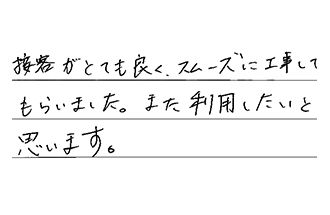 接客がとても良く、スムーズに工事して
もらいました。また利用したいと
思います。